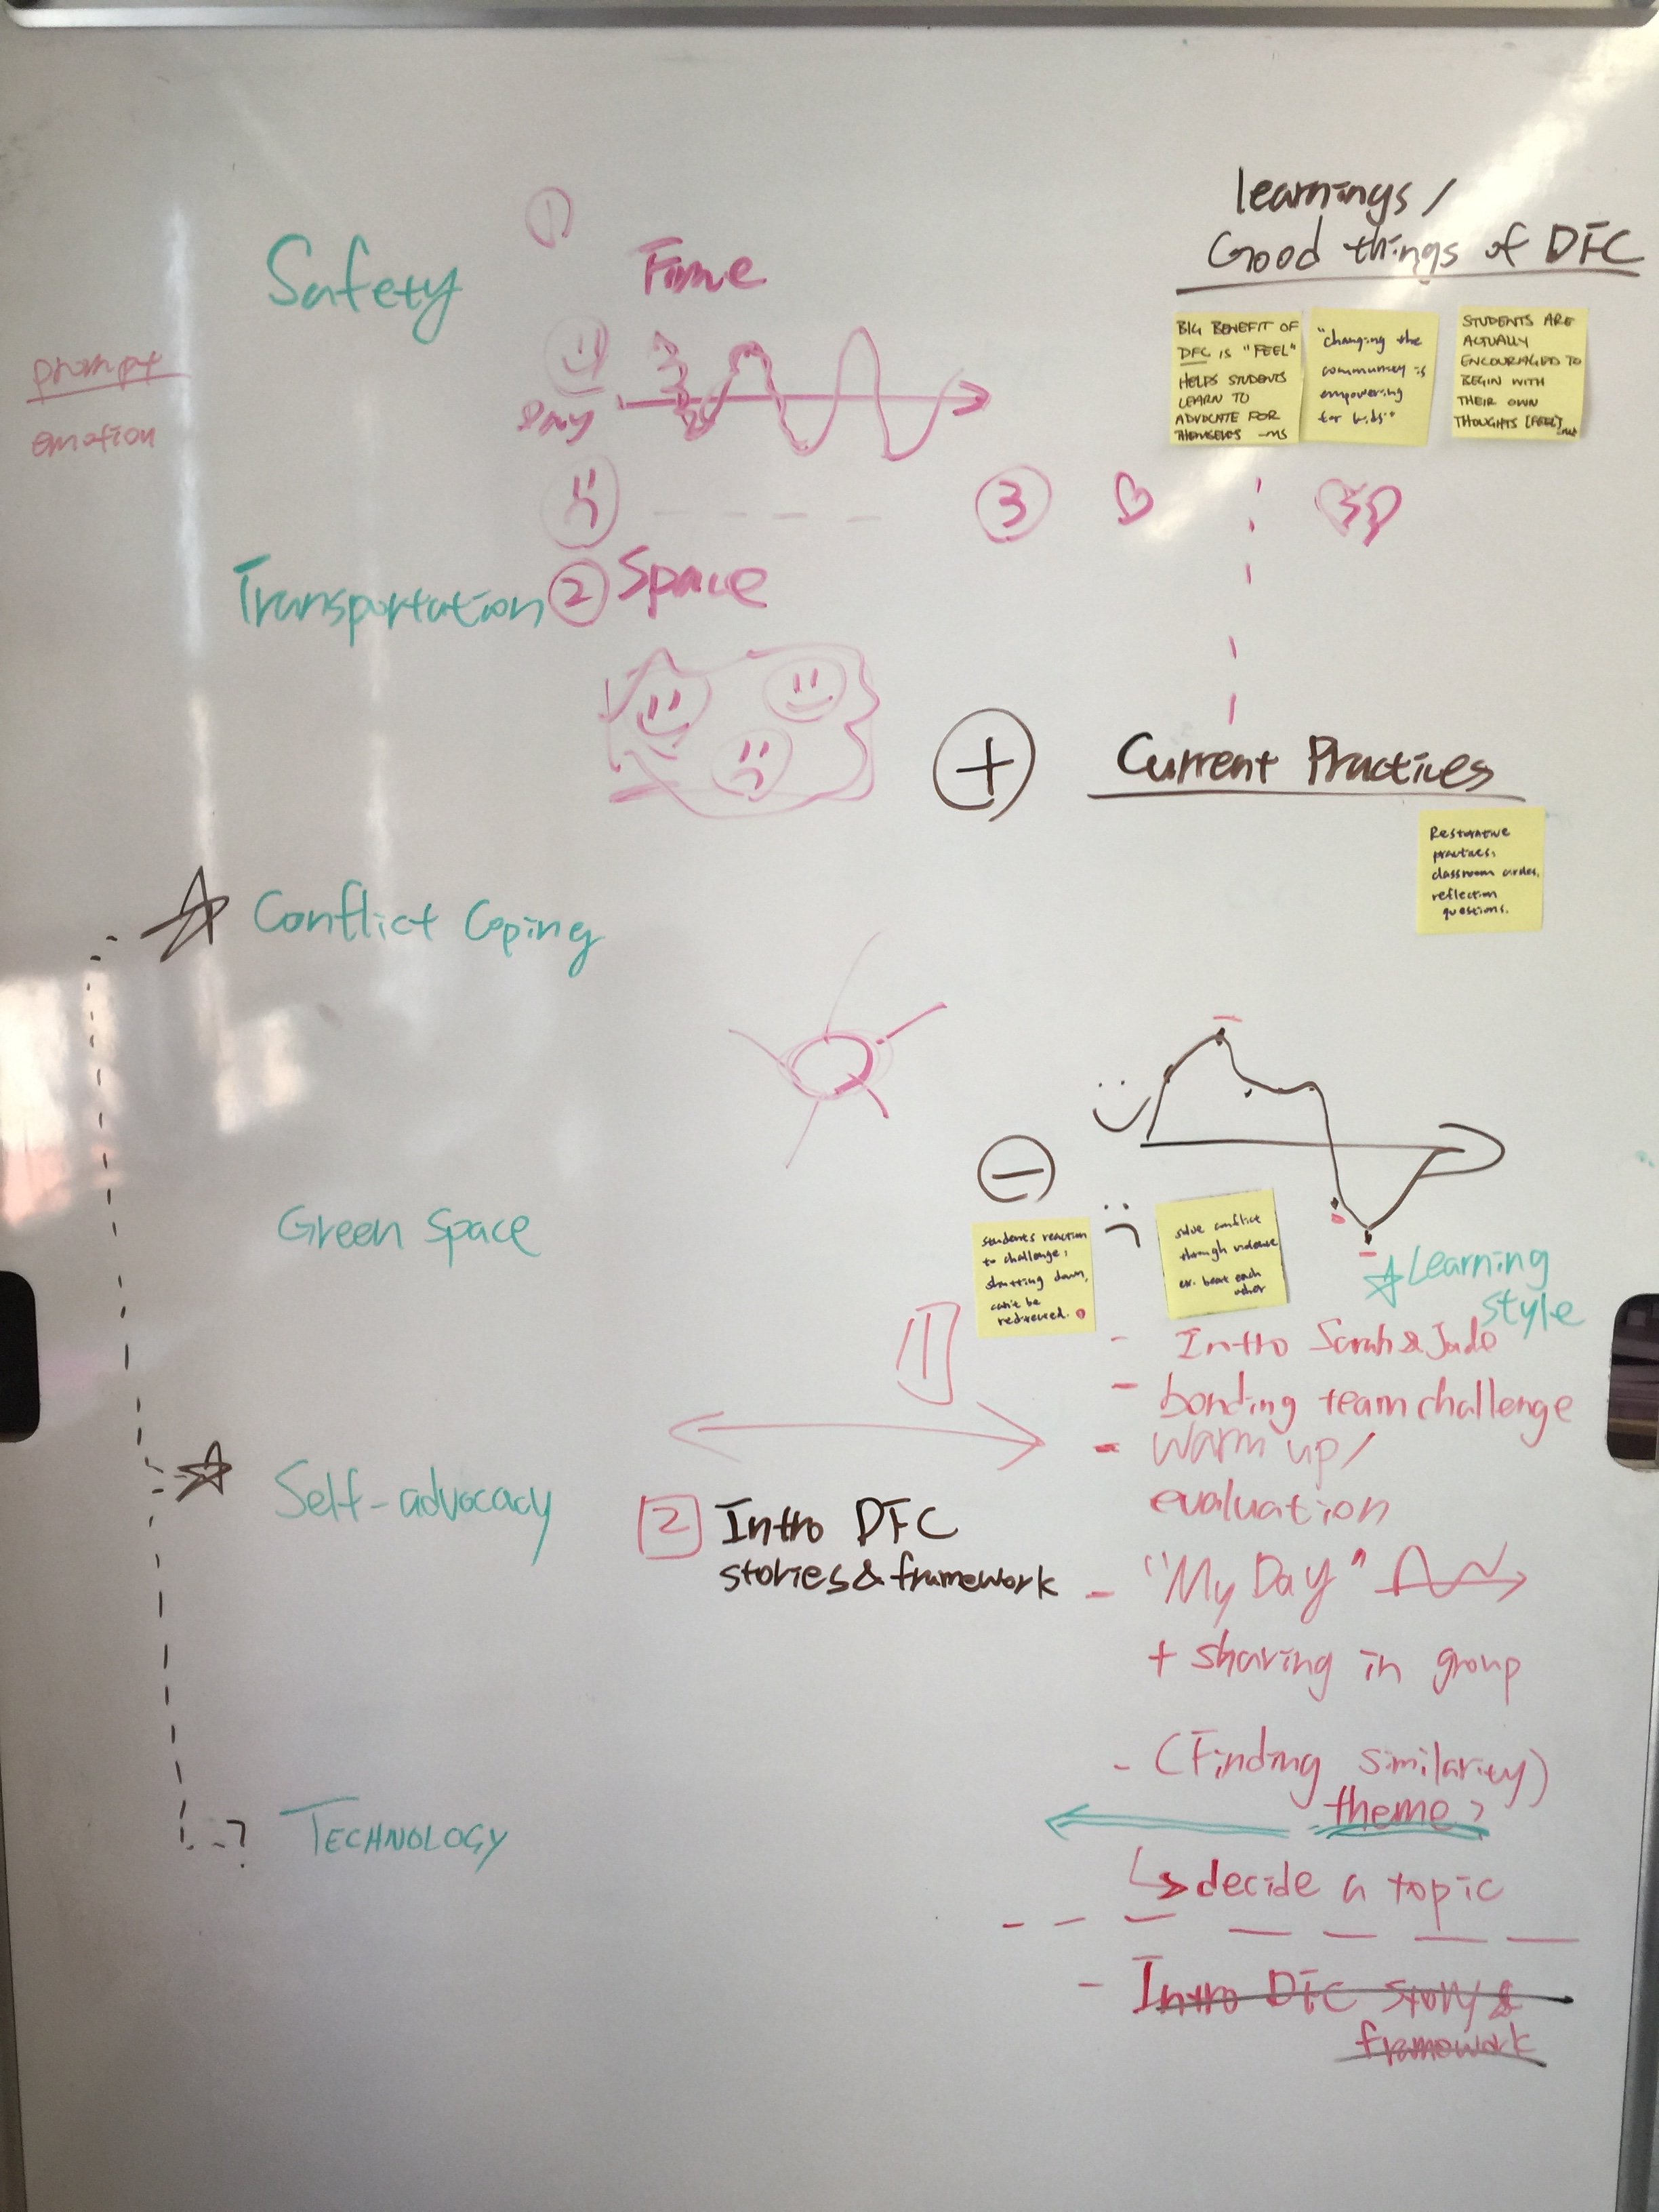 learnings/
Good things of DFC
BIG BENEFIT OF
DFC IS "FEEL"
HELPS STUDENTS
LEARN TO
ADVOCATE FOR
THEMSELVES -MS
"changing the
community is
empowering
for kids"
STUDENTS ARE
ACTUALLY
ENCOURAGED TO
BEGIN WITH
THEIR OWN
THOUGHTS [FEEL]
Safety
1
Time
prompt
emotion
3
Transportation
2 Space
+
Current Practices
Restorative
practices:
classroom circles,
reflection
questions.
Conflict Coping
Green Space
−
students reaction
to challenge:
shutting down,
can't be
redirected.
solve conflict
through violence
ex. beat each
other
Learning
style
1
- Intro Sarah & Jude
- bonding team challenge
- warm up/
evaluation
Self-advocacy
2 Intro DFC
stories & framework
- "My Day"
+ sharing in group
- (Finding similarity)
theme?
↳ decide a topic
TECHNOLOGY
?
- Intro DFC story &
framework